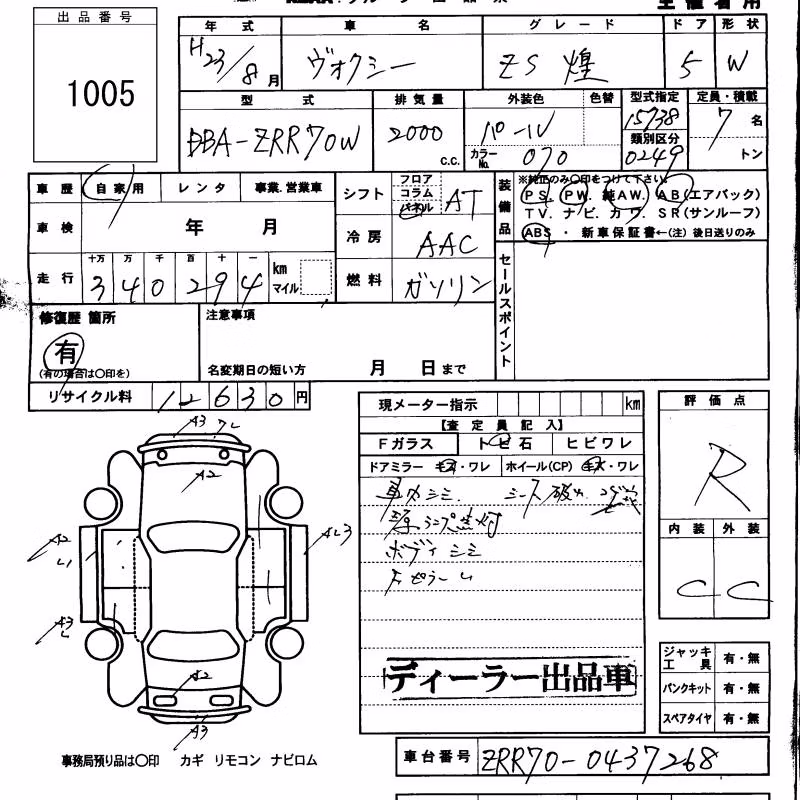 出品番号
1005
年式 車名 グレード ドア 形状
H23/8月 ヴォクシー ZS 煌 5 W
型式 排気量 外装色 色替 型式指定 定員・積載
DBA-ZRR70W 2000 c.c. パール 15738 7名
カラーNo. 070 類別区分 0249 トン
車歴 自家用 レンタ 事業.営業車
シフト フロア コラム パネル AT
装備品 ※純正のみ〇印をつけて下さい
PS. PW. 純AW. AB(エアバック)
TV. ナビ. カワ. SR(サンルーフ)
ABS ・ 新車保証書←(注) 後日送りのみ
車検 年 月
冷房 AAC
走行 十万 万 千 百 十 一
340294 km マイル
燃料 ガソリン
セールスポイント
修復歴 箇所
有
(有の場合は〇印を)
注意事項
名変期日の短い方 月 日まで
リサイクル料 12630円
現メーター指示 km
【査定員記入】
Fガラス トビ石 ヒビワレ
ドアミラー キズ・ワレ ホイール(CP) キズ・ワレ
車内シミ. シート破れ. コゲ穴
ボディシミ
ディーラー出品車
評価点
R
内装 外装
C C
A3
A2
A2
A3
A2
A3
ジャッキ工具 有・無
パンクキット 有・無
スペアタイヤ 有・無
事務局預り品は〇印 カギ リモコン ナビロム
車台番号 ZRR70-0437268